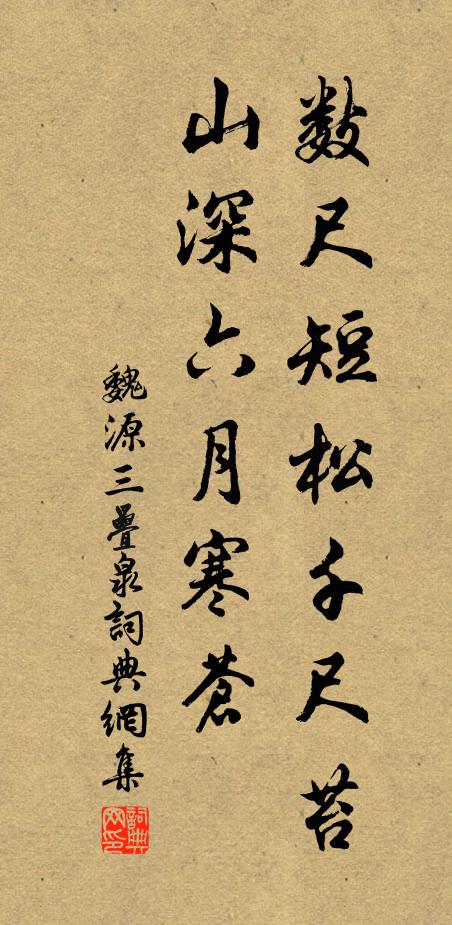 数尺短松千尺苔
山深六月寒蒼
魏源三疊泉詞典網集
詞典网印